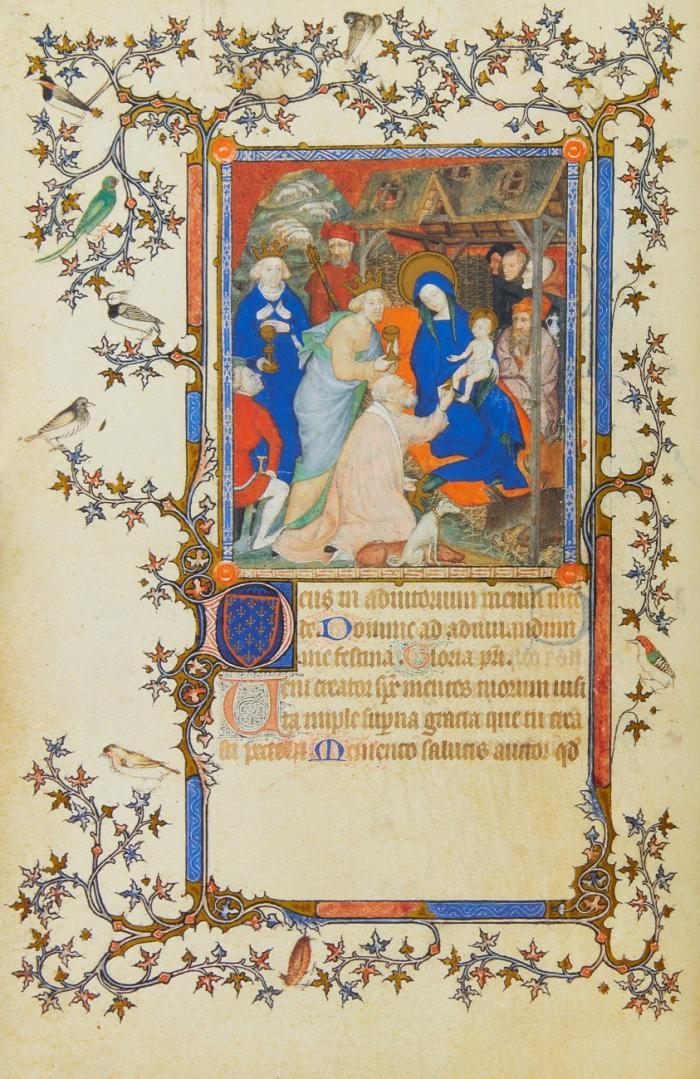 Deus in adiutorium meum inte
de Domine ad adiuuandum
me festina Gloria pri.
Ueni creator spc mentes tuorum uisi
ta imple superna gracia que tu crea
sti pectora Memento salutis auctor qd